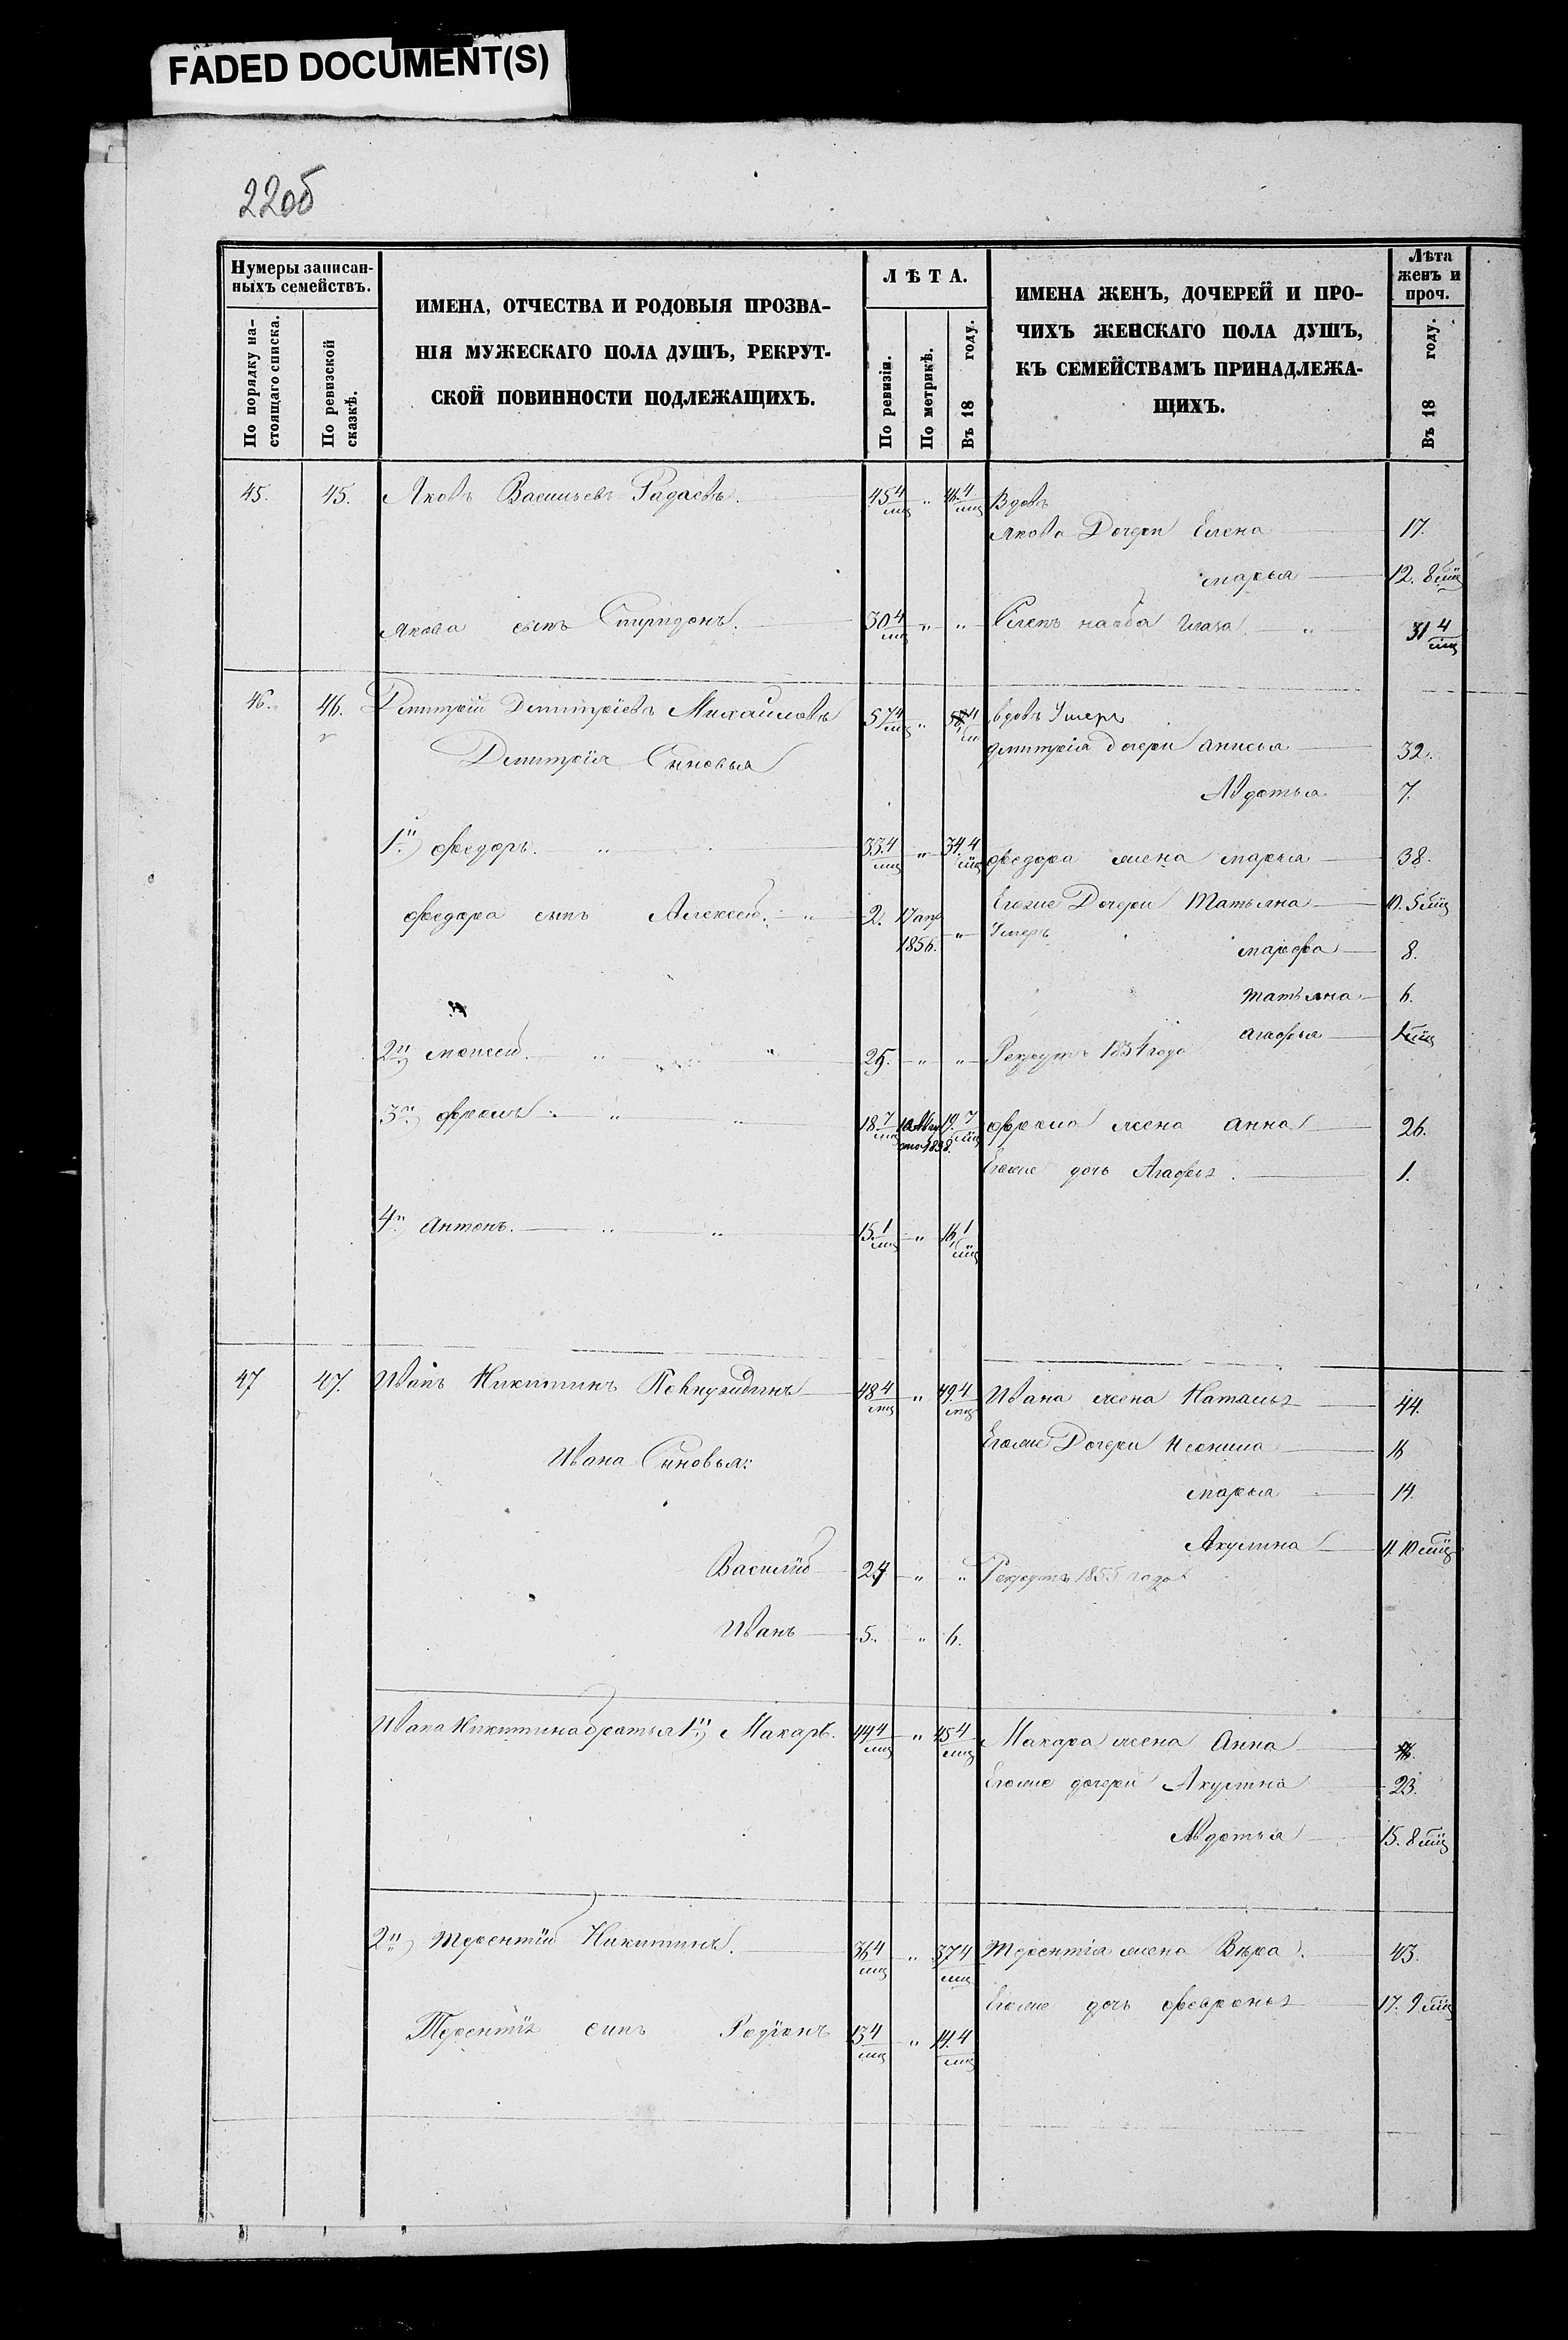 FADED DOCUMENT(S)
22об
Нумеры записан-
ныхъ семействъ.
По порядку на-
стоящаго списка.
По ревизской
сказкѣ.
ИМЕНА, ОТЧЕСТВА И РОДОВЫЯ ПРОЗВА-
НІЯ МУЖЕСКАГО ПОЛА ДУШЪ, РЕКРУТ-
СКОЙ ПОВИННОСТИ ПОДЛЕЖАЩИХЪ.
ЛѢТА.
По ревизіи.
По метрикѣ.
Въ 18 году.
ИМЕНА ЖЕНЪ, ДОЧЕРЕЙ И ПРО-
ЧИХЪ ЖЕНСКАГО ПОЛА ДУШЪ,
КЪ СЕМЕЙСТВАМЪ ПРИНАДЛЕЖА-
ЩИХЪ.
Лѣта
женъ и
проч.
Въ 18 году.
45. 45. Яковъ Васильевъ Радаевъ. 45 4/мц " 46. 4/мц Вдовъ
Якова Дочери Елена 17.
Марья 12. 8 мц
Якова сынъ Спиридонъ. 30 4/мц " " Слепъ на оба глаза " 31 4/мц
46. 46. Дмитрій Дмитріевъ Михайловъ 57 4/мц " 58 4/мц вдовъ Умеръ
Дмитрія Сыновья
Дмитрія дочери Анисья 32.
Авдотья 7.
1й) Федоръ. " 33. 4/мц " 34. 4/мц Федора жена Марья 38.
Федора сынъ Алексей. " 2. 17 апр 1856. " Умеръ
Егоже Дочери Татьяна 10. 5 мц
Марфа 8.
Татьяна 6.
Агафья
2й) Моисей. " " 25. " " Рекрутъ 1854 года
3й) Фролъ. " " 18 7/мц 19. 7/мц Фрола жена Анна 26.
Егоже дочь Агафья. 1.
4й) Антонъ. " " 15. 1/мц " 16 1/мц
47 47. Иванъ Никитинъ 48 4/мц " 49. 4/мц Ивана жена Наталья 44.
Егоже Дочери Неонила 16
Ивана Сыновья:
Марья 14.
Акулина 11. 10 мц
Василій 24 " " Рекрутъ 1855 года
Иванъ 5. " 6.
Ивана Никитина братья 1й) Макаръ. 44 4/мц " 45 4/мц Макара жена Анна
Егоже дочери Акулина 23.
Авдотья 15. 8 мц
2й) Терентій Никитинъ. 36 4/мц " 37 4/мц Терентія жена Вѣра. 43.
Егоже дочь Февронья 17. 9 мц
Терентія сынъ Родіонъ 13 4/мц " 14. 4/мц